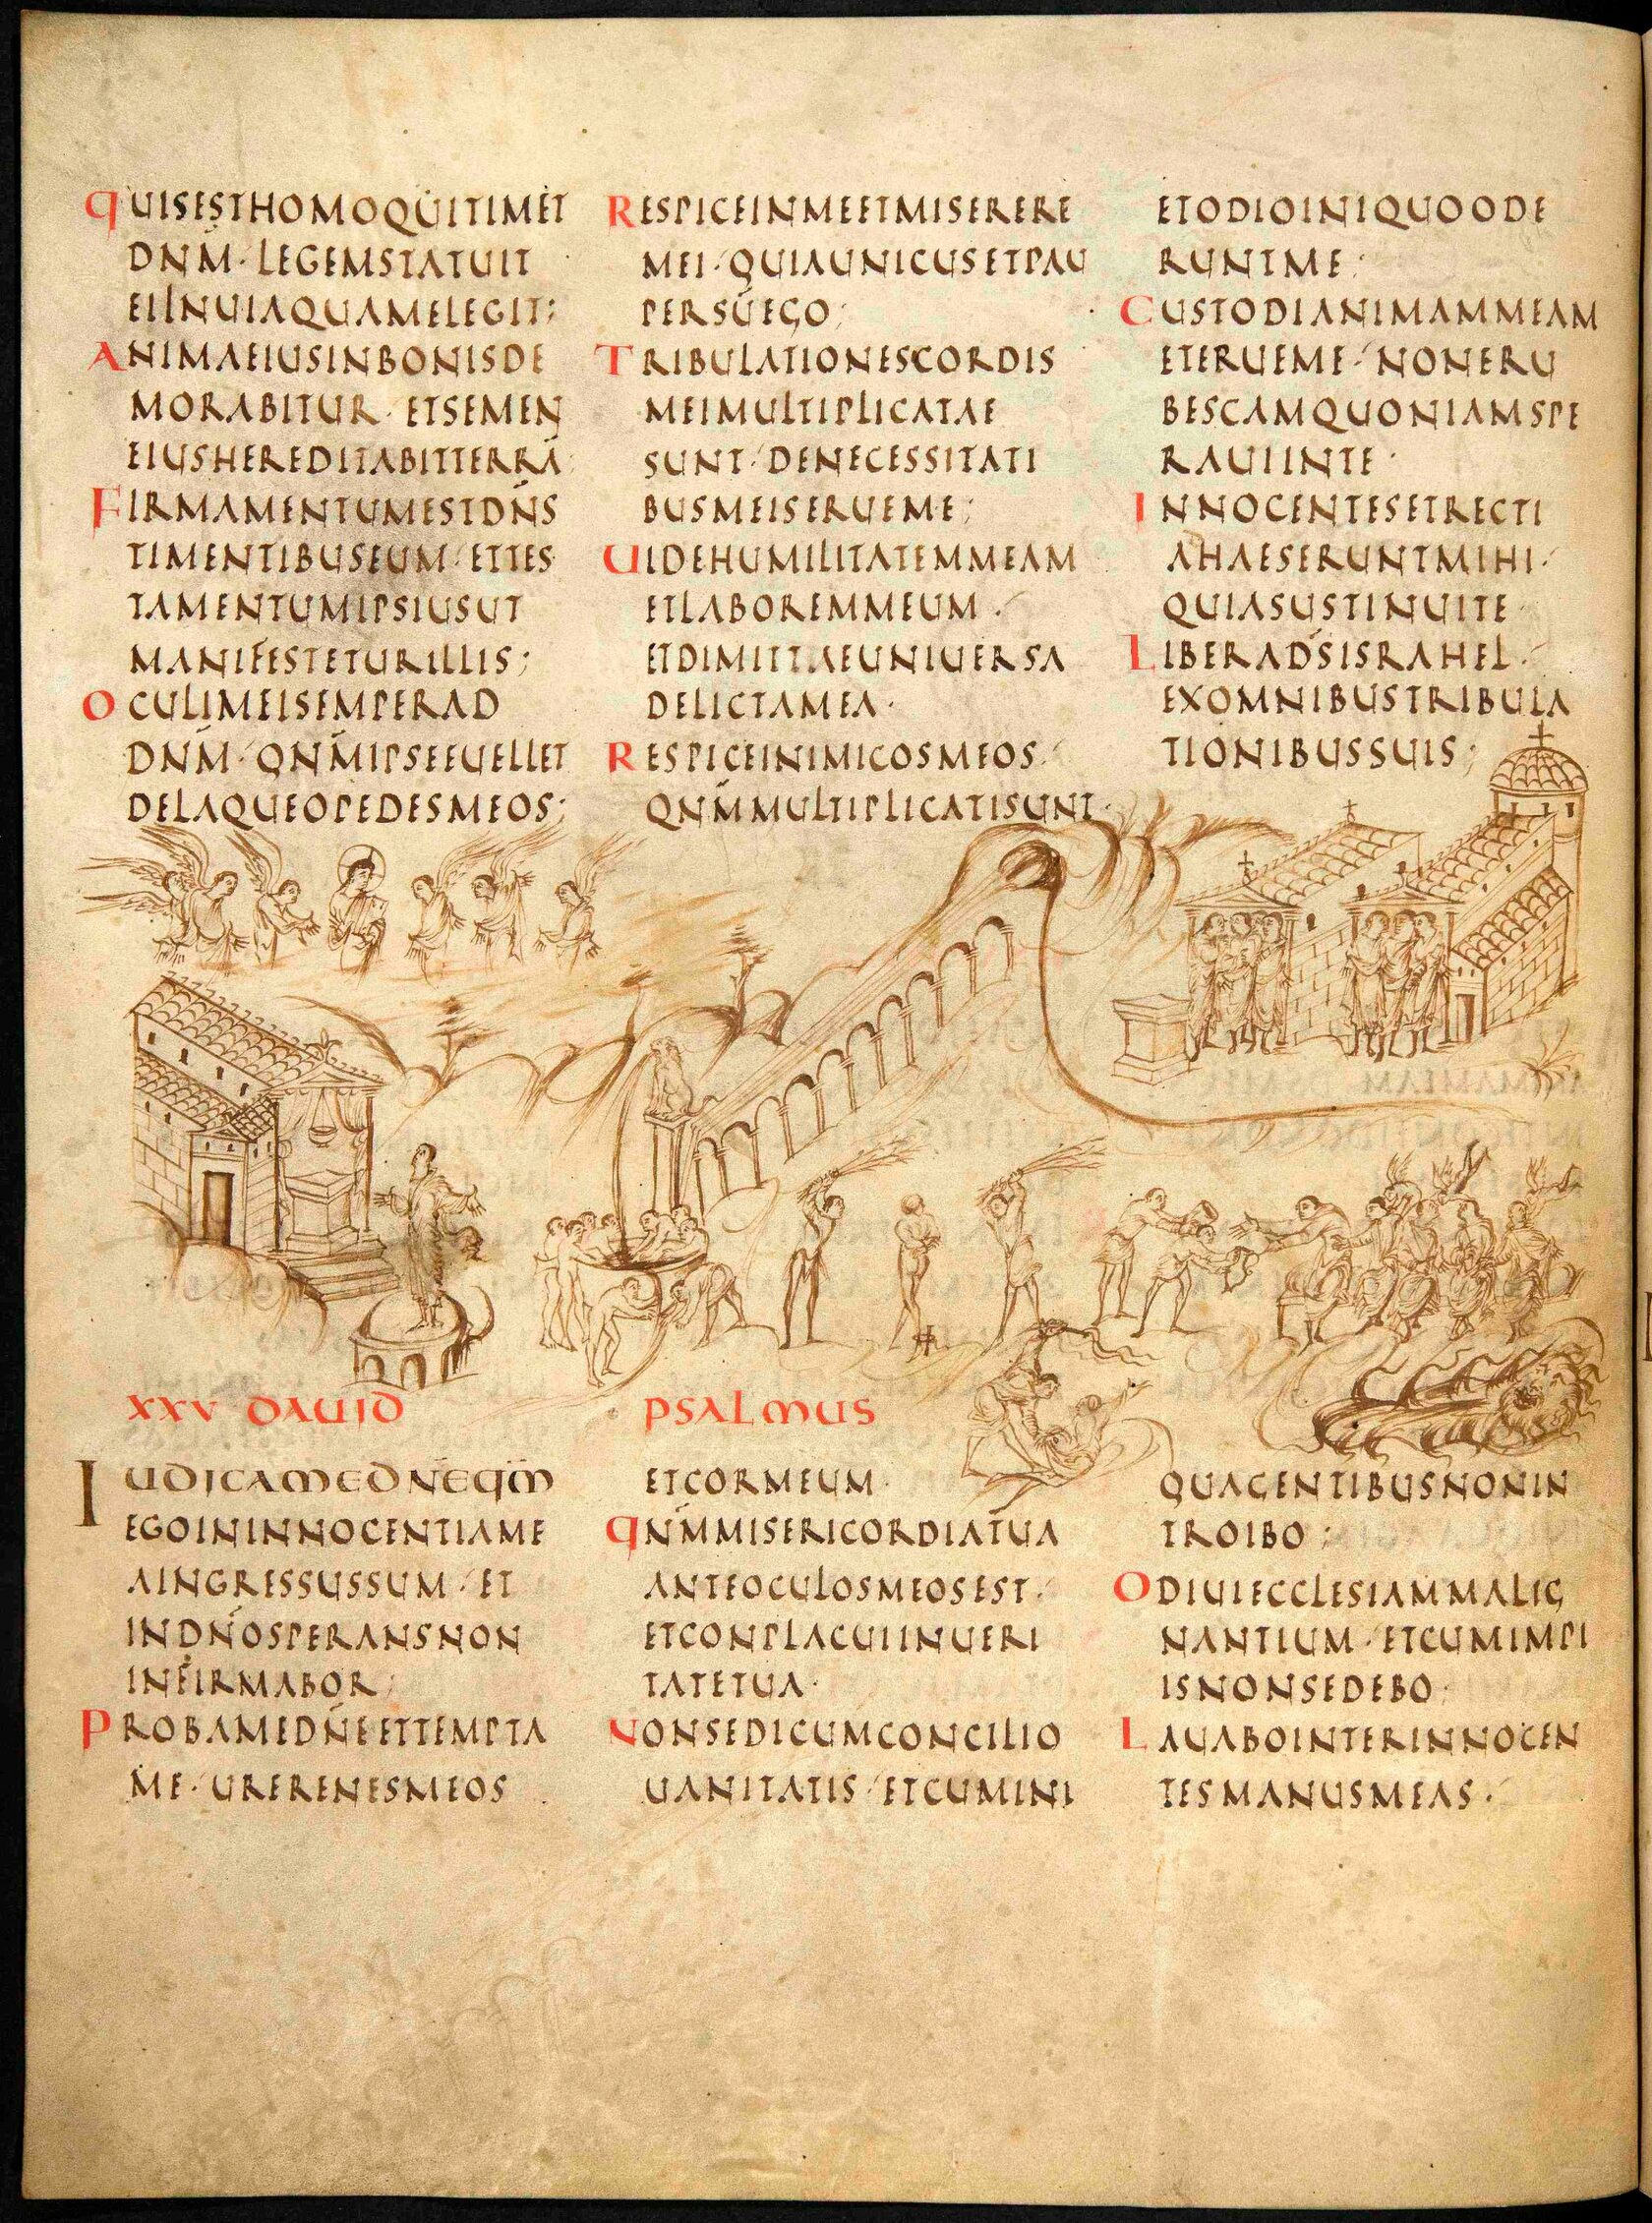 QUISESTHOMOQUITIMET
DNM· LEGEMSTATUIT
EIINUIAQUAMELEGIT;
ANIMAEIUSINBONISDE
MORABITUR· ETSEMEN
EIUSHEREDITABITTERRĀ
FIRMAMENTUMESTDN̄S
TIMENTIBUSEUM· ETTES
TAMENTUMIPSIUSUT
MANIFESTETURILLIS;
OCULIMEISEMPERAD
DNM̄· QNM̄IPSEEUELLET
DELAQUEOPEDESMEOS;
RESPICEINMEETMISERERE
MEI· QUIAUNICUSETPAU
PERSŪEGO;
TRIBULATIONESCORDIS
MEIMULTIPLICATAE
SUNT· DENECESSITATI
BUSMEISERUEME;
UIDEHUMILITATEMMEAM
ETLABOREMMEUM·
ETDIMITTAEUNIUERSA
DELICTAMEA·
RESPICEINIMICOSMEOS·
QNM̄MULTIPLICATISUNT·
ETODIOINIQUOODE
RUNTME;
CUSTODIANIMAMMEAM
ETERUEME· NONERU
BESCAMQUONIAMSPE
RAUIINTE·
INNOCENTESETRECTI
AHAESERUNTMIHI·
QUIASUSTINUITE·
LIBERAD̄SISRAHEL·
EXOMNIBUSTRIBULA
TIONIBUSSUIS;
XXV DAUID PSALMUS
IUDICAMEDN̄EQM̄
EGOININNOCENTIAME
AINGRESSUSSUM· ET
INDN̄OSPERANSNON
INFIRMABOR;
PROBAMEDN̄EETTEMPTA
ME· URERENESMEOS
ETCORMEUM·
QNM̄MISERICORDIATUA
ANTEOCULOSMEOSEST·
ETCONPLACUIINUERI
TATETUA·
NONSEDICUMCONCILIO
UANITATIS· ETCUMINI
QUAGENTIBUSNONIN
TROIBO;
ODIUIECCLESIAMMALIG
NANTIUM· ETCUMIMPI
ISNONSEDEBO·
LAUABOINTERINNOCEN
TESMANUSMEAS·